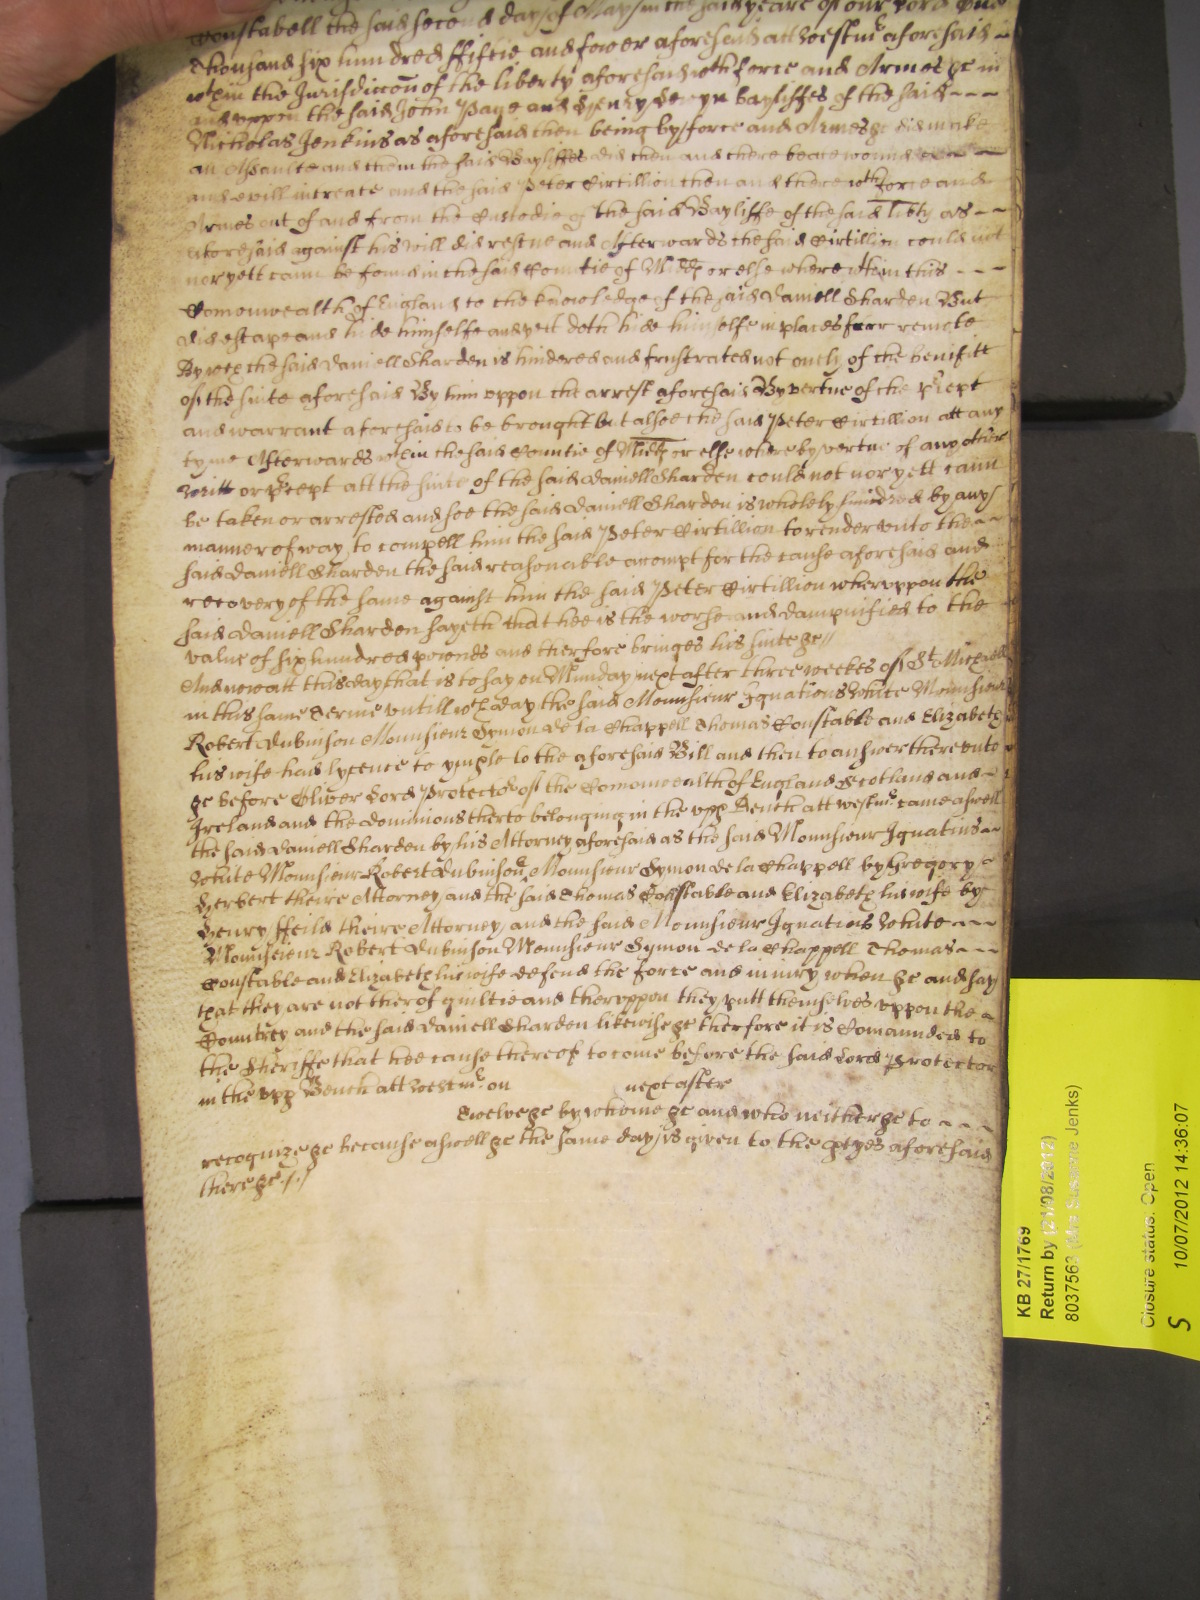 Constabell the said second day of May in the said yeare of our Lord One
thousand six hundred ffiftie and fower aforesaid att Westmr aforesaid
wthin the Jurisdiccon of the liberty aforesaid wth force and Armes &c in
and uppon the said John Page and Henry bayliffes of the said
Nicholas Jenkins as aforesaid then being by force and Armes &c did make
an Assaulte and them the said Bayliffes did then and there beate wound
and evill intreate and the said Peter Cirtillion then and there wth force and
Armes out of and from the Custodie of the said Bayliffe of the said libty as
aforesaid against his will did rescue and Afterwards the said Cirtillion could not
nor yett cann be found in the said Countie of Midd or else where wthin this
Comonwealth of England to the knowledge of the said Daniell Sharden But
did escape and hide himselfe and yett doth hide himselfe in places farr remote
By wch the said Daniell Sharden is hindered and frustrated not onely of the benifitt
of the suite aforesaid By him uppon the arrest aforesaid By vertue of the precept
and warrant aforesaid to be brought but alsoe the said Peter Cirtillion att any
tyme Afterwards wthin the said Countie of Midd or else where by vertue of any other
writt or precept att the suite of the said Daniell Sharden could not nor yett cann
be taken or arrested and soe the said Daniell Sharden is wholely hindred by any
manner of way to compell him the said Peter Cirtillion to render unto the
said Daniell Sharden the said reasonable accompt for the cause aforesaid and
recovery of the same against him the said Peter Cirtillion wheruppon the
said Daniell Sharden sayeth that hee is the worse and dampnified to the
value of six hundred pownds and therfore bringes his suite &c//
And now att this day that is to say on Munday next after three weekes of St Michaell
in this same Terme untill wch day the said Mounsieur Ignatious White Mounsieur
Robert Dubinson Mounsieur Symon de la Chappell Thomas Constable and Elizabeth
his wife had lycence to imple to the aforesaid Bill and then to answer thereunto
&c before Oliver Lord Protector of the Comonwealth of England Scotland and
Ireland and the dominions therto belonging in the upp Bench att westmr came aswell
the said Daniell Sharden by his Attorney aforesaid as the said Mounsieur Ignatius
White Mounsieur Robert Dubinson Mounsieur Symon de la Chappell by Gregory
Herbert theire Attorney and the said Thomas Constable and Elizabeth his wife by
Henry ffeild theire Attorney and the said Mounsieur Ignatius White
Mounsieur Robert Dubinson Mounsieur Symon de la Chappell Thomas
Constable and Elizabeth his wife defend the force and iniury when &c and say
that they are not therof guiltie and theruppon they putt themselves uppon the
Countrey and the said Daniell Sharden likewise &c therfore it is Comaunded to
the Sheriffe that hee cause thereof to come before the said Lord Protector
in the upp Bench att Westmr on next after
Twelve &c by whome &c and who neither &c to
recognize &c because aswell &c the same day is given to the ptyes aforesaid
there &c //
KB 27/1769
Return by (21/08/2012)
8037563 (Mrs Susanne Jenks)
Closure status: Open
10/07/2012 14:36:07
S